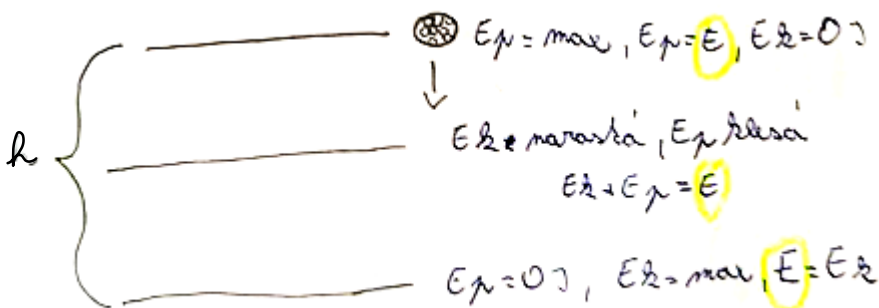 Ep = max, Ep = E, Ek = 0 J
h
Ek narastá, Ep klesá
Ek + Ep = E
Ep = 0 J, Ek = max, E = Ek